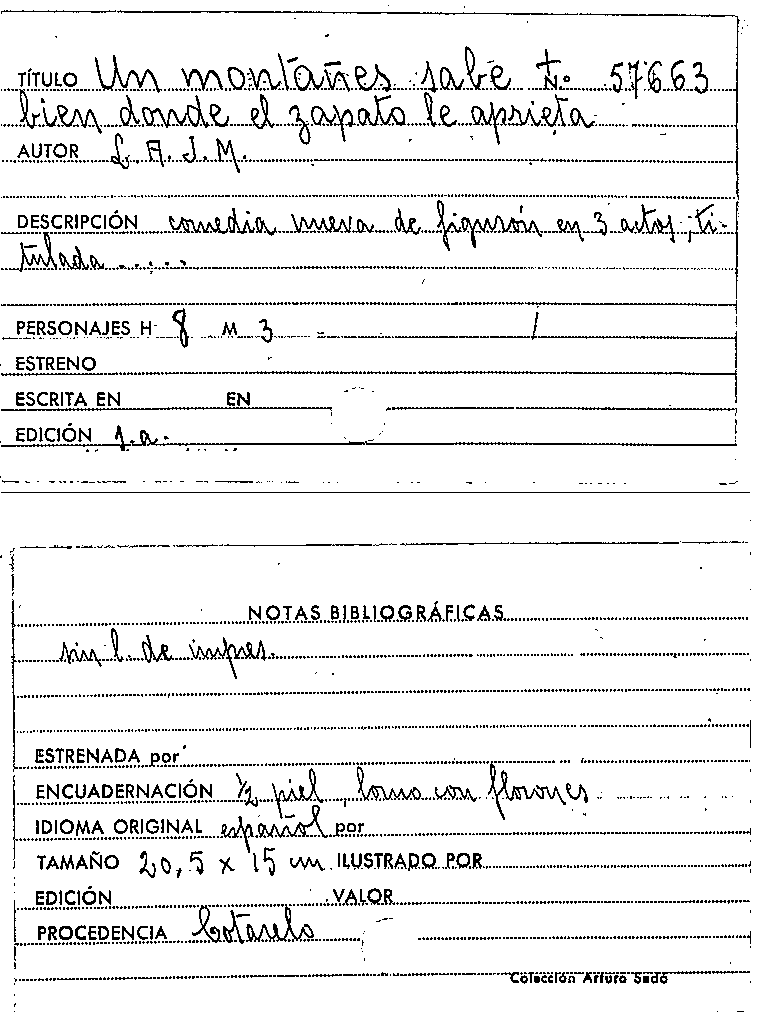 TÍTULO Un montañes sabe t. Nº 57663
bien donde el zapato le aprieta
AUTOR L. A. J. M.
DESCRIPCIÓN comedia nueva de figurón en 3 actos, ti-
tulada .....
PERSONAJES H 8 M 3 - /
ESTRENO
ESCRITA EN EN
EDICIÓN s.a.
NOTAS BIBLIOGRÁFICAS
sin l. de impres.
ESTRENADA por
ENCUADERNACIÓN ½ piel, lomo con florones
IDIOMA ORIGINAL español por
TAMAÑO 20,5 x 15 cm ILUSTRADO POR
EDICIÓN VALOR
PROCEDENCIA Cotarelo
Colección Arturo Sedó